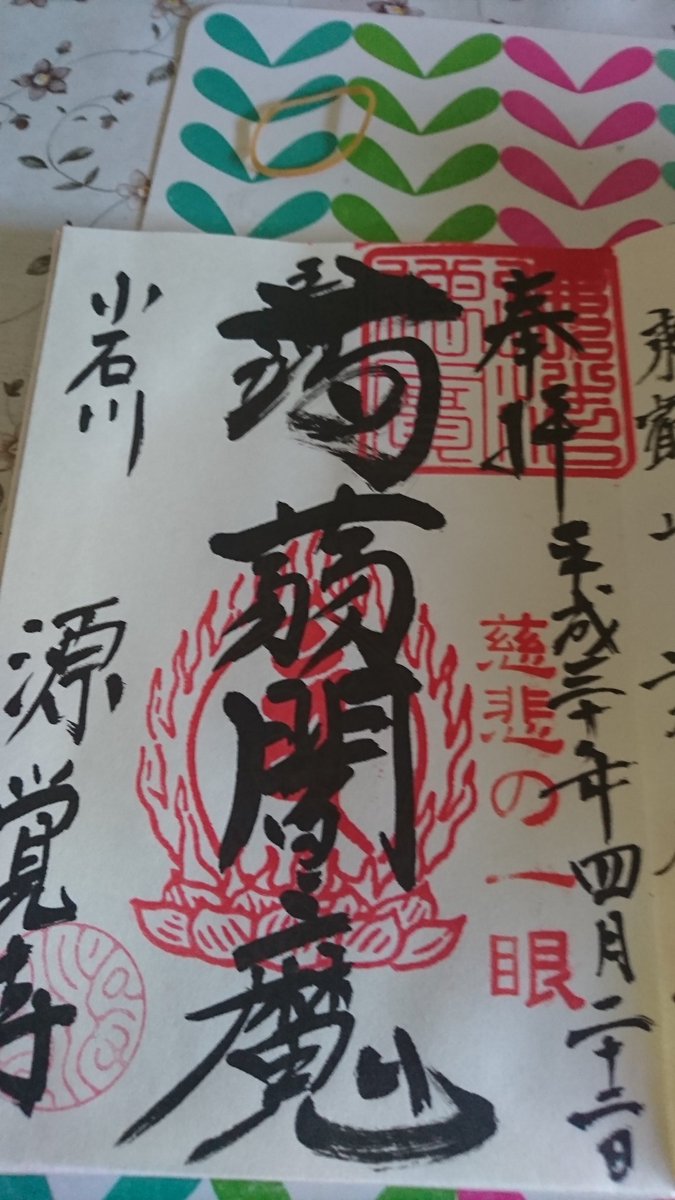 東叡山
奉拝
平成三十年四月二十二日
慈悲の一眼
蒟蒻閻魔
小石川
源覚寺